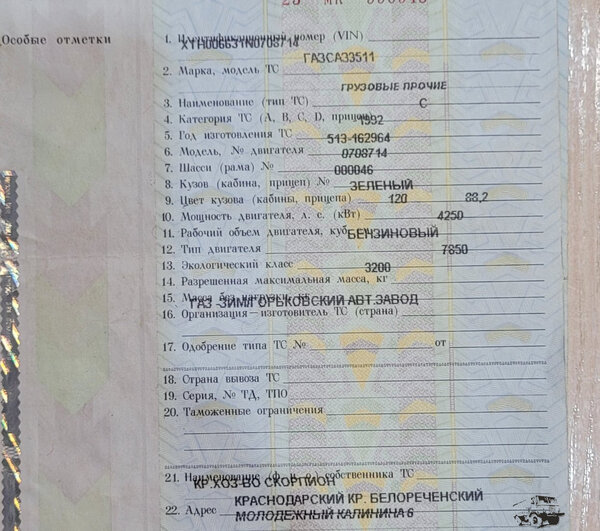 Особые отметки
1. Идентификационный номер (VIN)
ХТН006631N0708714
ГАЗСАЗ3511
2. Марка, модель ТС
ГРУЗОВЫЕ ПРОЧИЕ
3. Наименование (тип ТС)
С
4. Категория ТС (А, В, С, D, прицеп)
1992
5. Год изготовления ТС
513-162964
6. Модель, № двигателя
0708714
7. Шасси (рама) №
000046
8. Кузов (кабина, прицеп) №
ЗЕЛЕНЫЙ
9. Цвет кузова (кабины, прицепа)
120 88,2
10. Мощность двигателя, л. с. (кВт)
4250
11. Рабочий объем двигателя, куб.
БЕНЗИНОВЫЙ
12. Тип двигателя
7850
13. Экологический класс
3200
14. Разрешенная максимальная масса, кг
15. Масса без нагрузки, кг
ГАЗ -ЗИМЛ ОРЬКОВСКИЙ АВТ.ЗАВОД
16. Организация—изготовитель ТС (страна)
17. Одобрение типа ТС № от
18. Страна вывоза ТС
19. Серия, № ТД, ТПО
20. Таможенные ограничения
21. Наименование (ф. и. о.) собственника ТС
КР.ХОЗ-ВО СКОРПИОН
КРАСНОДАРСКИЙ КР. БЕЛОРЕЧЕНСКИЙ
22. Адрес МОЛОДЕЖНЫЙ КАЛИНИНА 6